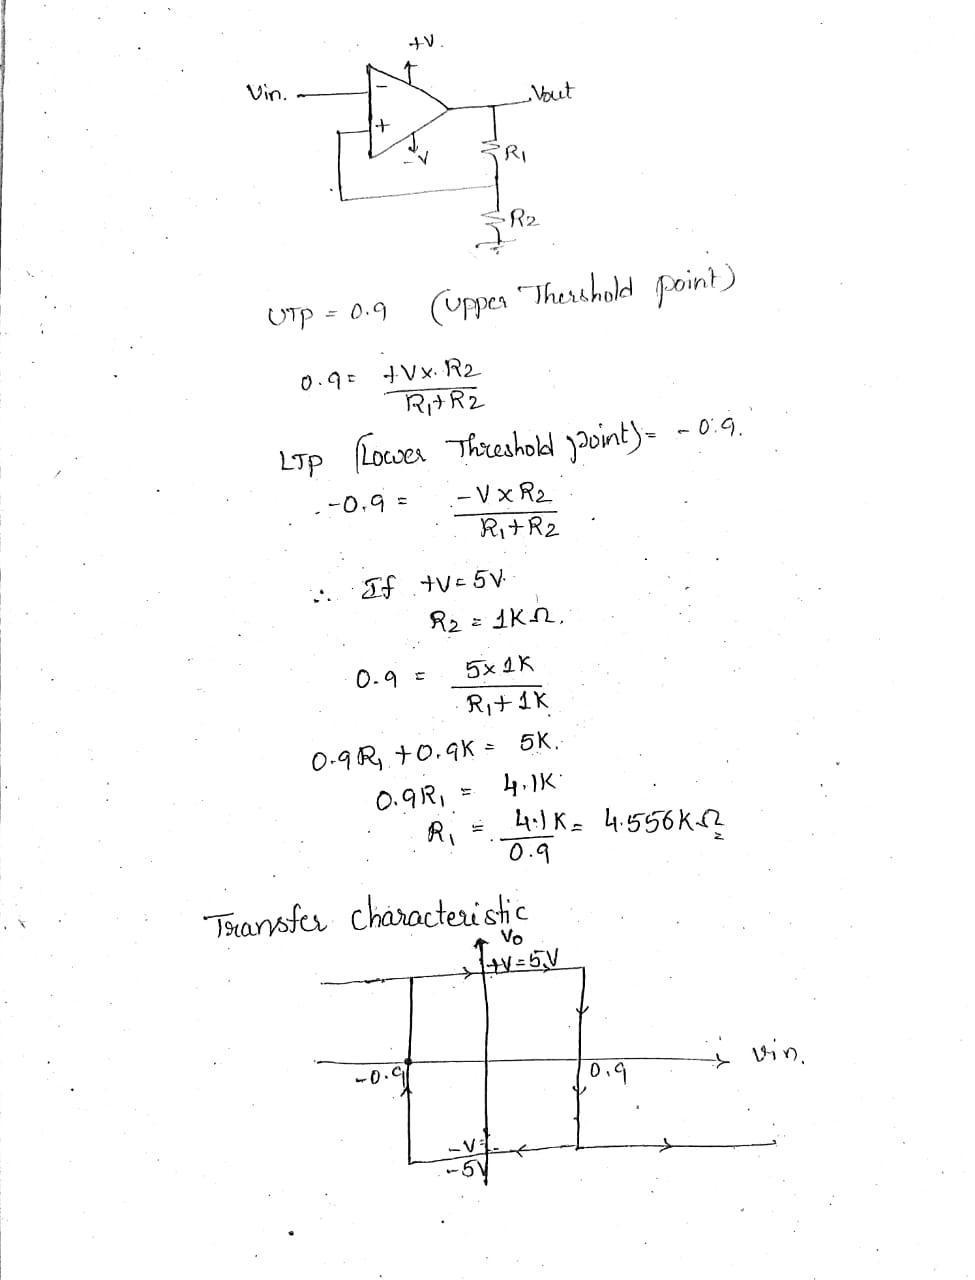 +V.
Vin.
Vout
-
+
-V
R1
R2
UTP = 0.9 (Upper Thershold point)
0.9 = +Vx. R2
R1+R2
LTP (Lower Threshold point) = - 0.9.
-0.9 = -V x R2
R1+R2
∴ If +V = 5V.
R2 = 1KΩ.
0.9 = 5x1K
R1+1K
0.9R1 +0.9K = 5K.
0.9R1 = 4.1K
R1 = 4.1K = 4.556KΩ
0.9
Transfer characteristic
Vo
+V=5V
Vin.
-0.9
0.9
-V=
-5V